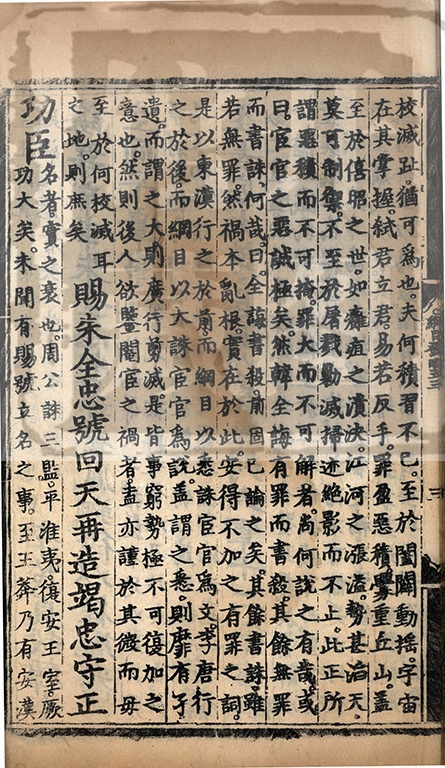 校滅趾猶可爲也夫何積習不已至於闔闢動搖宇宙
在其掌握弑君立君易若反手罪盈惡積釁重丘山蓋
至於僖昭之世如癰疽之潰決江河之漲溢勢甚滔天
莫可制禦不至於屠戮勦滅掃迹絶影而不上此正所
謂惡積而不可掩罪大而不可解者尚何說之有哉或
曰宦官之惡誠極矣然韓全誨有罪而書殺其餘無罪
而書誅何哉曰全誨書殺前固已論之矣其餘書誅雖
若無罪然禍本亂根實在於此安得不加之有罪之詞
是以東漢行之於前而綱目以悉誅宦官爲文李唐行
之於後而綱目以大誅宦官爲說蓋謂之悉則靡有孑
遺而謂之大則廣行勦滅是皆事窮勢極不可復加之
意也然則後人欲鑒閹宦之禍者盍亦謹於其微而毋
至於何校滅耳
之地則庶矣
賜朱全忠號回天再造竭忠守正
功臣
名者實之表也周公誅三監平淮夷復安王室厥
功大矣未聞有賜號立名之事至王莽乃有安漢
三